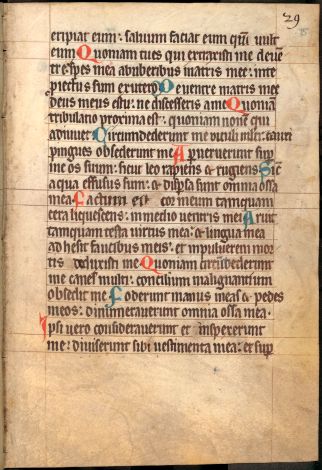 29
eripiat eum: saluum faciat eum qm uult
eum Quoniam tu es qui extraxisti me de uen
tre: spes mea ab uberibus matris mee: in te
proiectus sum ex utero De uentre matris mee
deus meus es tu: ne discesseris a me Quoniam
tribulatio proxima est: quoniam non est qui
adiuuet Circumdederunt me uituli multi: tauri
pingues obsederunt me Aperuerunt sup
me os suum: sicut leo rapiens & rugiens Sic
aqua effusus sum: & dispsa sunt omnia ossa
mea Factum est cor meum tamquam
cera liquescens: in medio uentris mei Aruit
tamquam testa uirtus mea: & lingua mea
adhesit faucibus meis: et in puluerem mor
tis deduxisti me Quoniam circumdederunt
me canes multi: concilium malignantium
obsedit me Foderunt manus meas & pedes
meos: dinumerauerunt omnia ossa mea
Ipsi uero considerauerunt et inspexerunt
me: diuiserunt sibi uestimenta mea: et sup